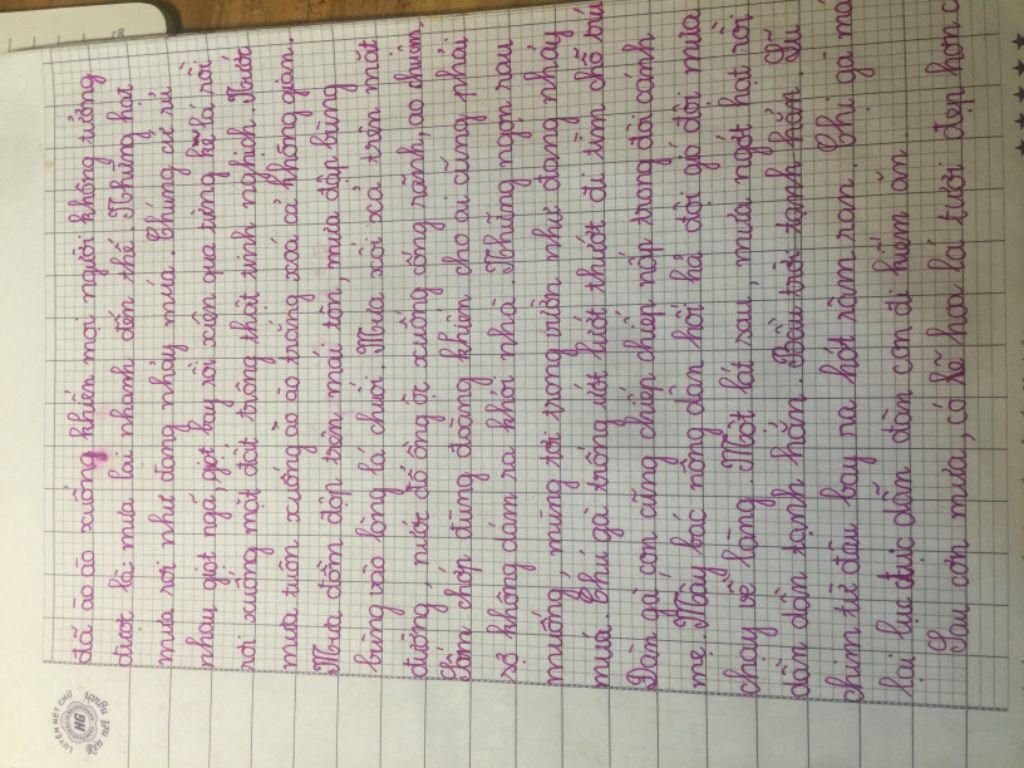 đã ào ào xuống khiến mọi người không tưởng
được là mưa lại nhanh đến thế. Những hạt
mưa rơi như đang nhảy múa. Chúng cứ rủ
nhau giọt ngã, giọt bay rồi xiên qua từng kẽ lá rồi
rơi xuống mặt đất trông thật tinh nghịch. Nước
mưa tuôn xuống ào ào trắng xoá cả không gian.
Mưa dồn dập trên mái tôn, mưa đập bùng
bùng vào lòng lá chuối. Mưa xối xả trên mặt
đường, nước đổ ồng ộc xuống cống rãnh, ao chuôm.
Sấm chớp đùng đoàng khiến cho ai cũng phải
sợ không dám ra khỏi nhà. Những ngọn rau
muống, mùng tơi trong vườn như đang nhảy
múa. Chú gà trống ướt lướt thướt đi tìm chỗ trú
Đàn gà con cũng chiếp chiếp nấp trong đôi cánh
mẹ. Mấy bác nông dân hối hả đội gió đội mưa
chạy về làng. Một lát sau, mưa ngớt hạt rồi
dần dần tạnh hẳn. Bầu trời tạnh hẳn. Lũ
chim từ đâu bay ra hót râm ran. Chị gà má
lại lục đục dẫn đàn con đi kiếm ăn.
Sau cơn mưa, có lẽ hoa lá tươi đẹp hơn c
LUYỆN NÉT CHỮ
Rèn nết người
HG